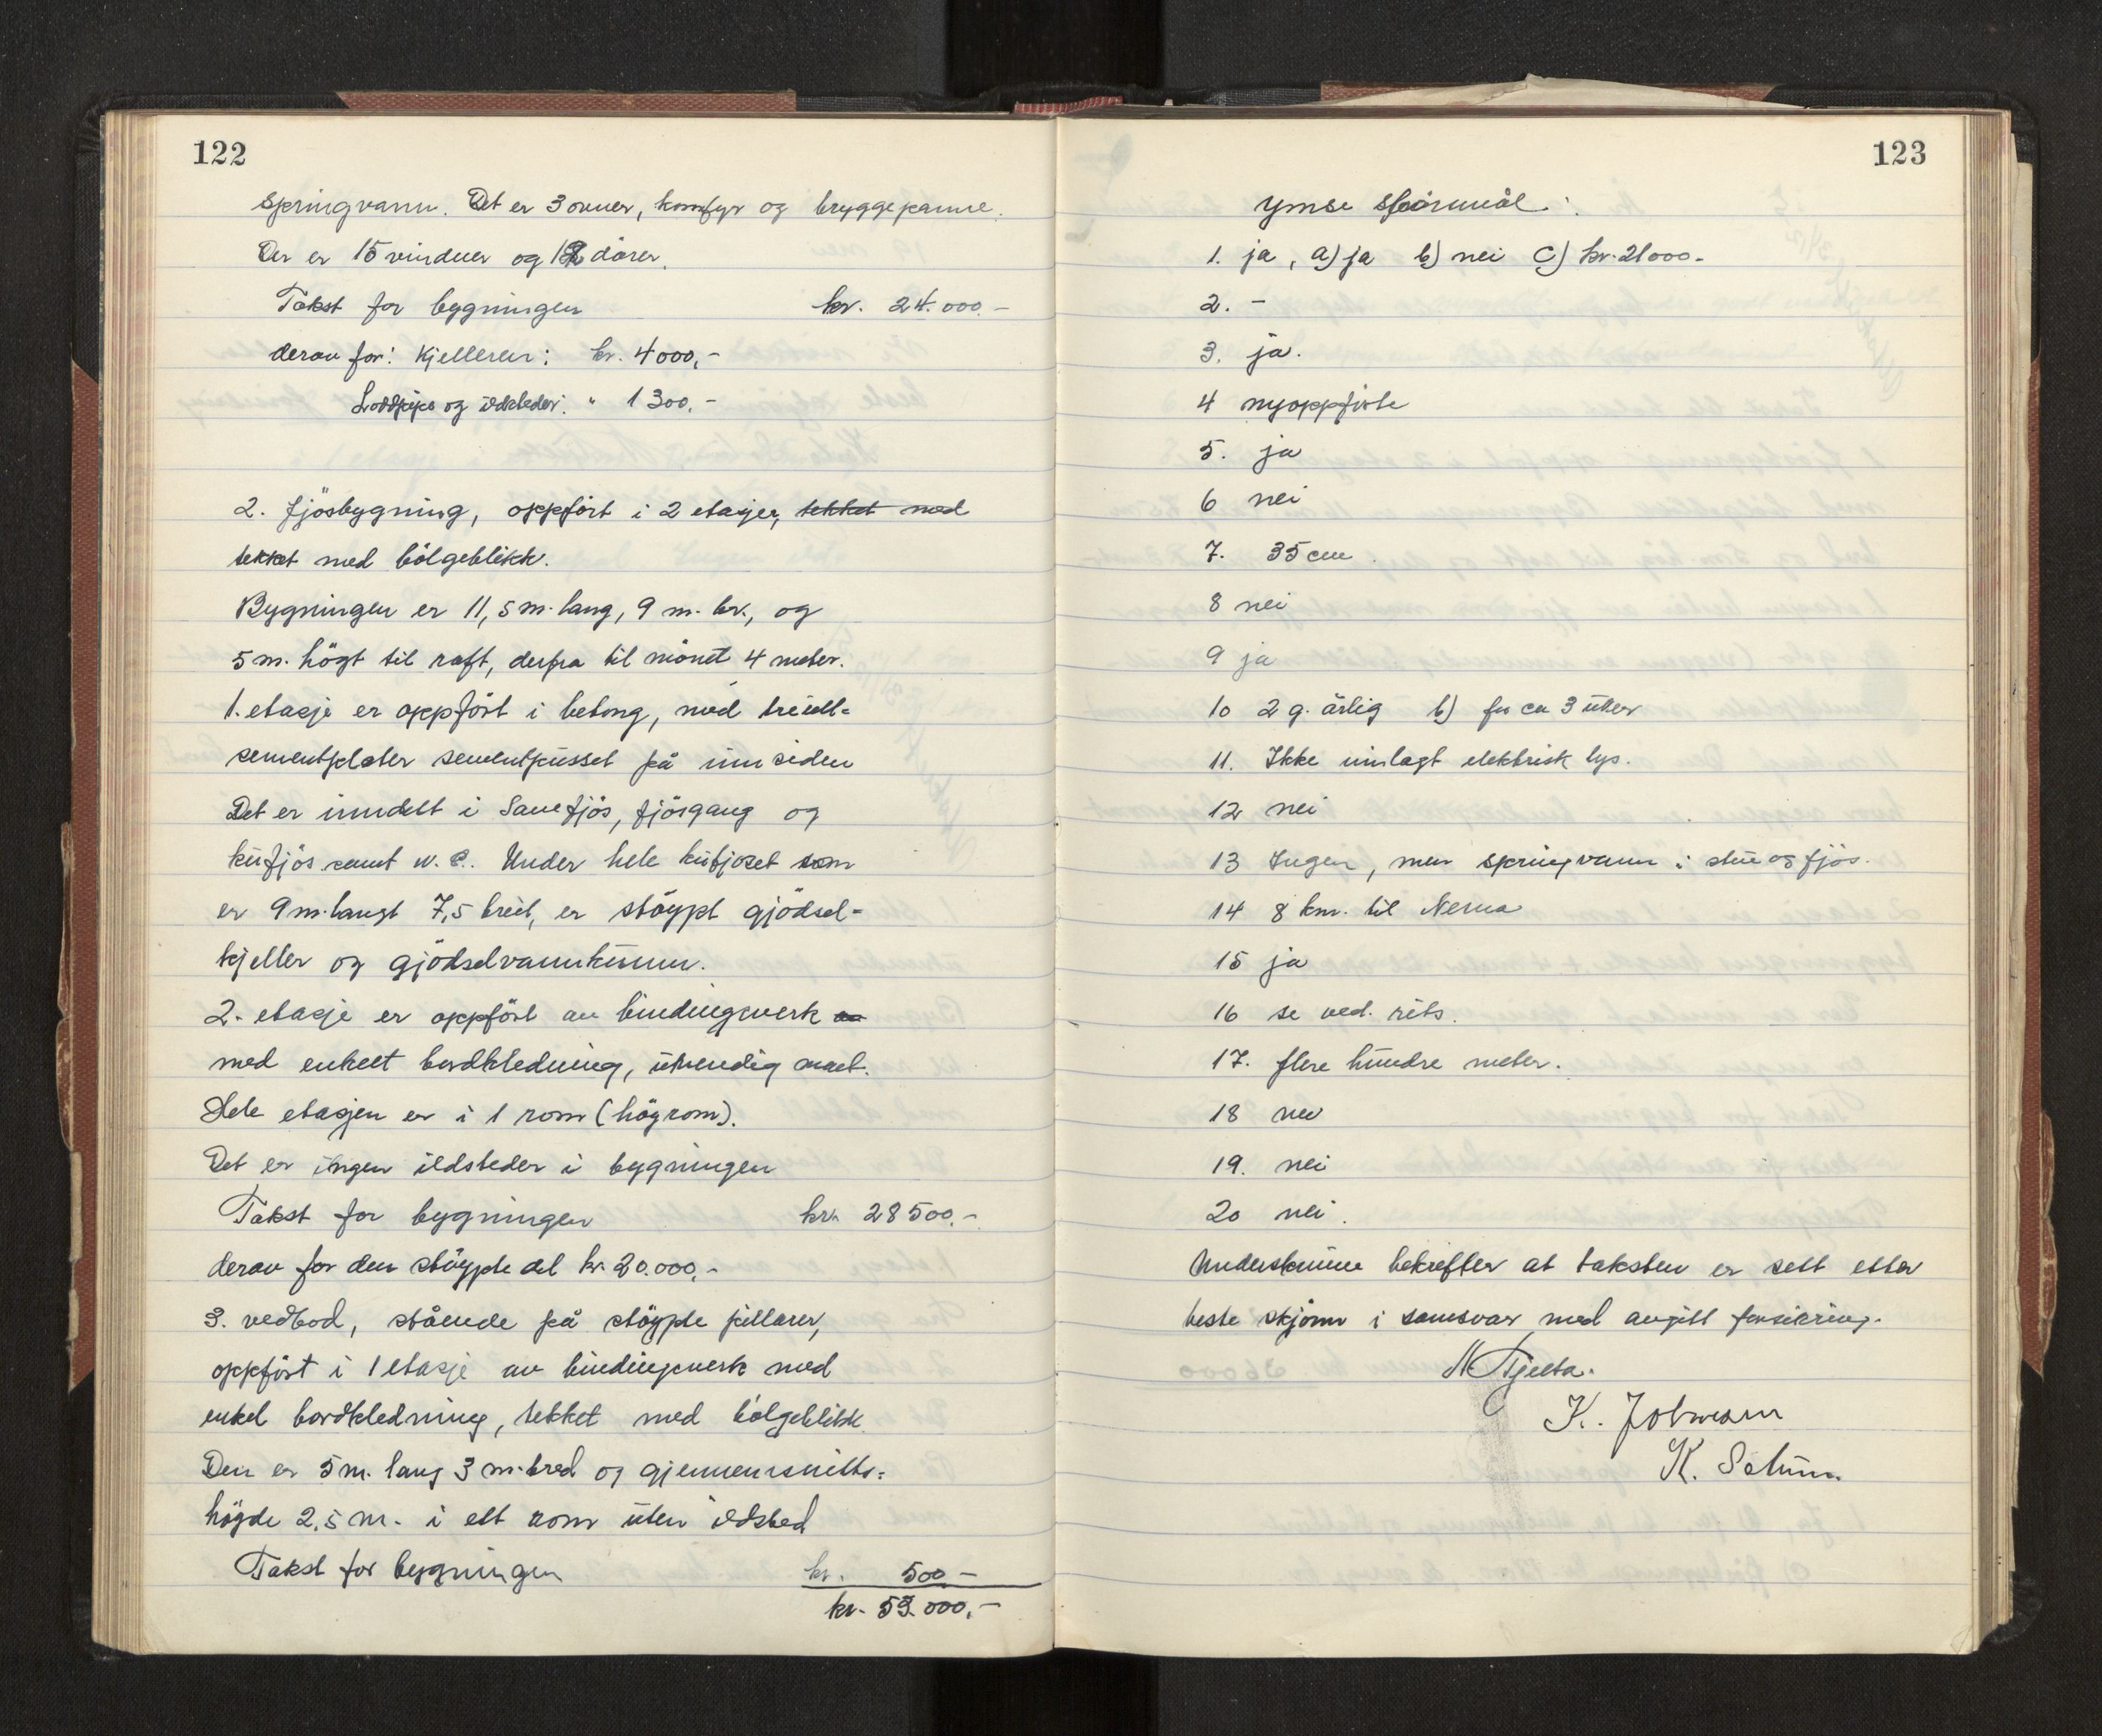 122
springvann. Det er 3 ovner, komfyr og bryggepanne.
Der er 15 vinduer og 12 dörer.
Takst for bygningen kr. 24.000.-
derav for: Kjelleren: kr. 4000,-
og ildsteder: " 1300.-
2. fjösbygning, oppfört i 2 etasjer, tekket med
tekket med bölgeblikk.
Bygningen er 11,5 m. lang, 9 m. br., og
5 m. högt til raft, derfra til mönet 4 meter.
1. etasje er oppfört i betong, med treull-
sementplater sementpusset på innsiden
Det er inndelt i Sauefjös, fjösgang og
kufjös samt w.c. Under hele kufjoset som
er 9 m. langt 7,5 breit, er stöypt gjödsel-
kjeller og gjödselvannkumm.
2. etasje er oppfört av bindingsverk
med enkelt bordkledning, utvendig malt.
Hele etasjen er i 1 rom (högrom).
Det er ingen ildsteder i bygningen
Takst for bygningen kr. 28500.-
derav for den stöypte del kr. 20.000,-
3. vedbod, stående på stöypte pillarer,
oppfört i 1 etasje av bindingsverk med
enkel bordkledning, tekket med bölgeblikk
Den er 5 m. lang 3 m. bred og gjennemsnitts-
högde 2,5 m. i ett rom uten ildsted
Takst for bygningen kr. 500.-
kr. 53.000,-
123
Ymse spörsmål:
1. ja, a) ja b) nei c) kr. 21000.-
2. -
3. ja.
4 nyoppförte
5. ja
6 nei
7. 35 cm.
8 nei
9 ja
10 2 g. årlig b) for ca 3 uker
11. Ikke innlagt elektrisk lys.
12 nei
13 Ingen, men springvann i stue og fjös.
14 8 km. til Nerna
15 ja
16 se ved. rits.
17. flere hundre meter.
18 nei
19. nei
20 nei.
Underskrivne bekrefter at taksten er sett etter
beste skjönn i samsvar med avgitt forsikring.
N. Tjelta.
K.
K.